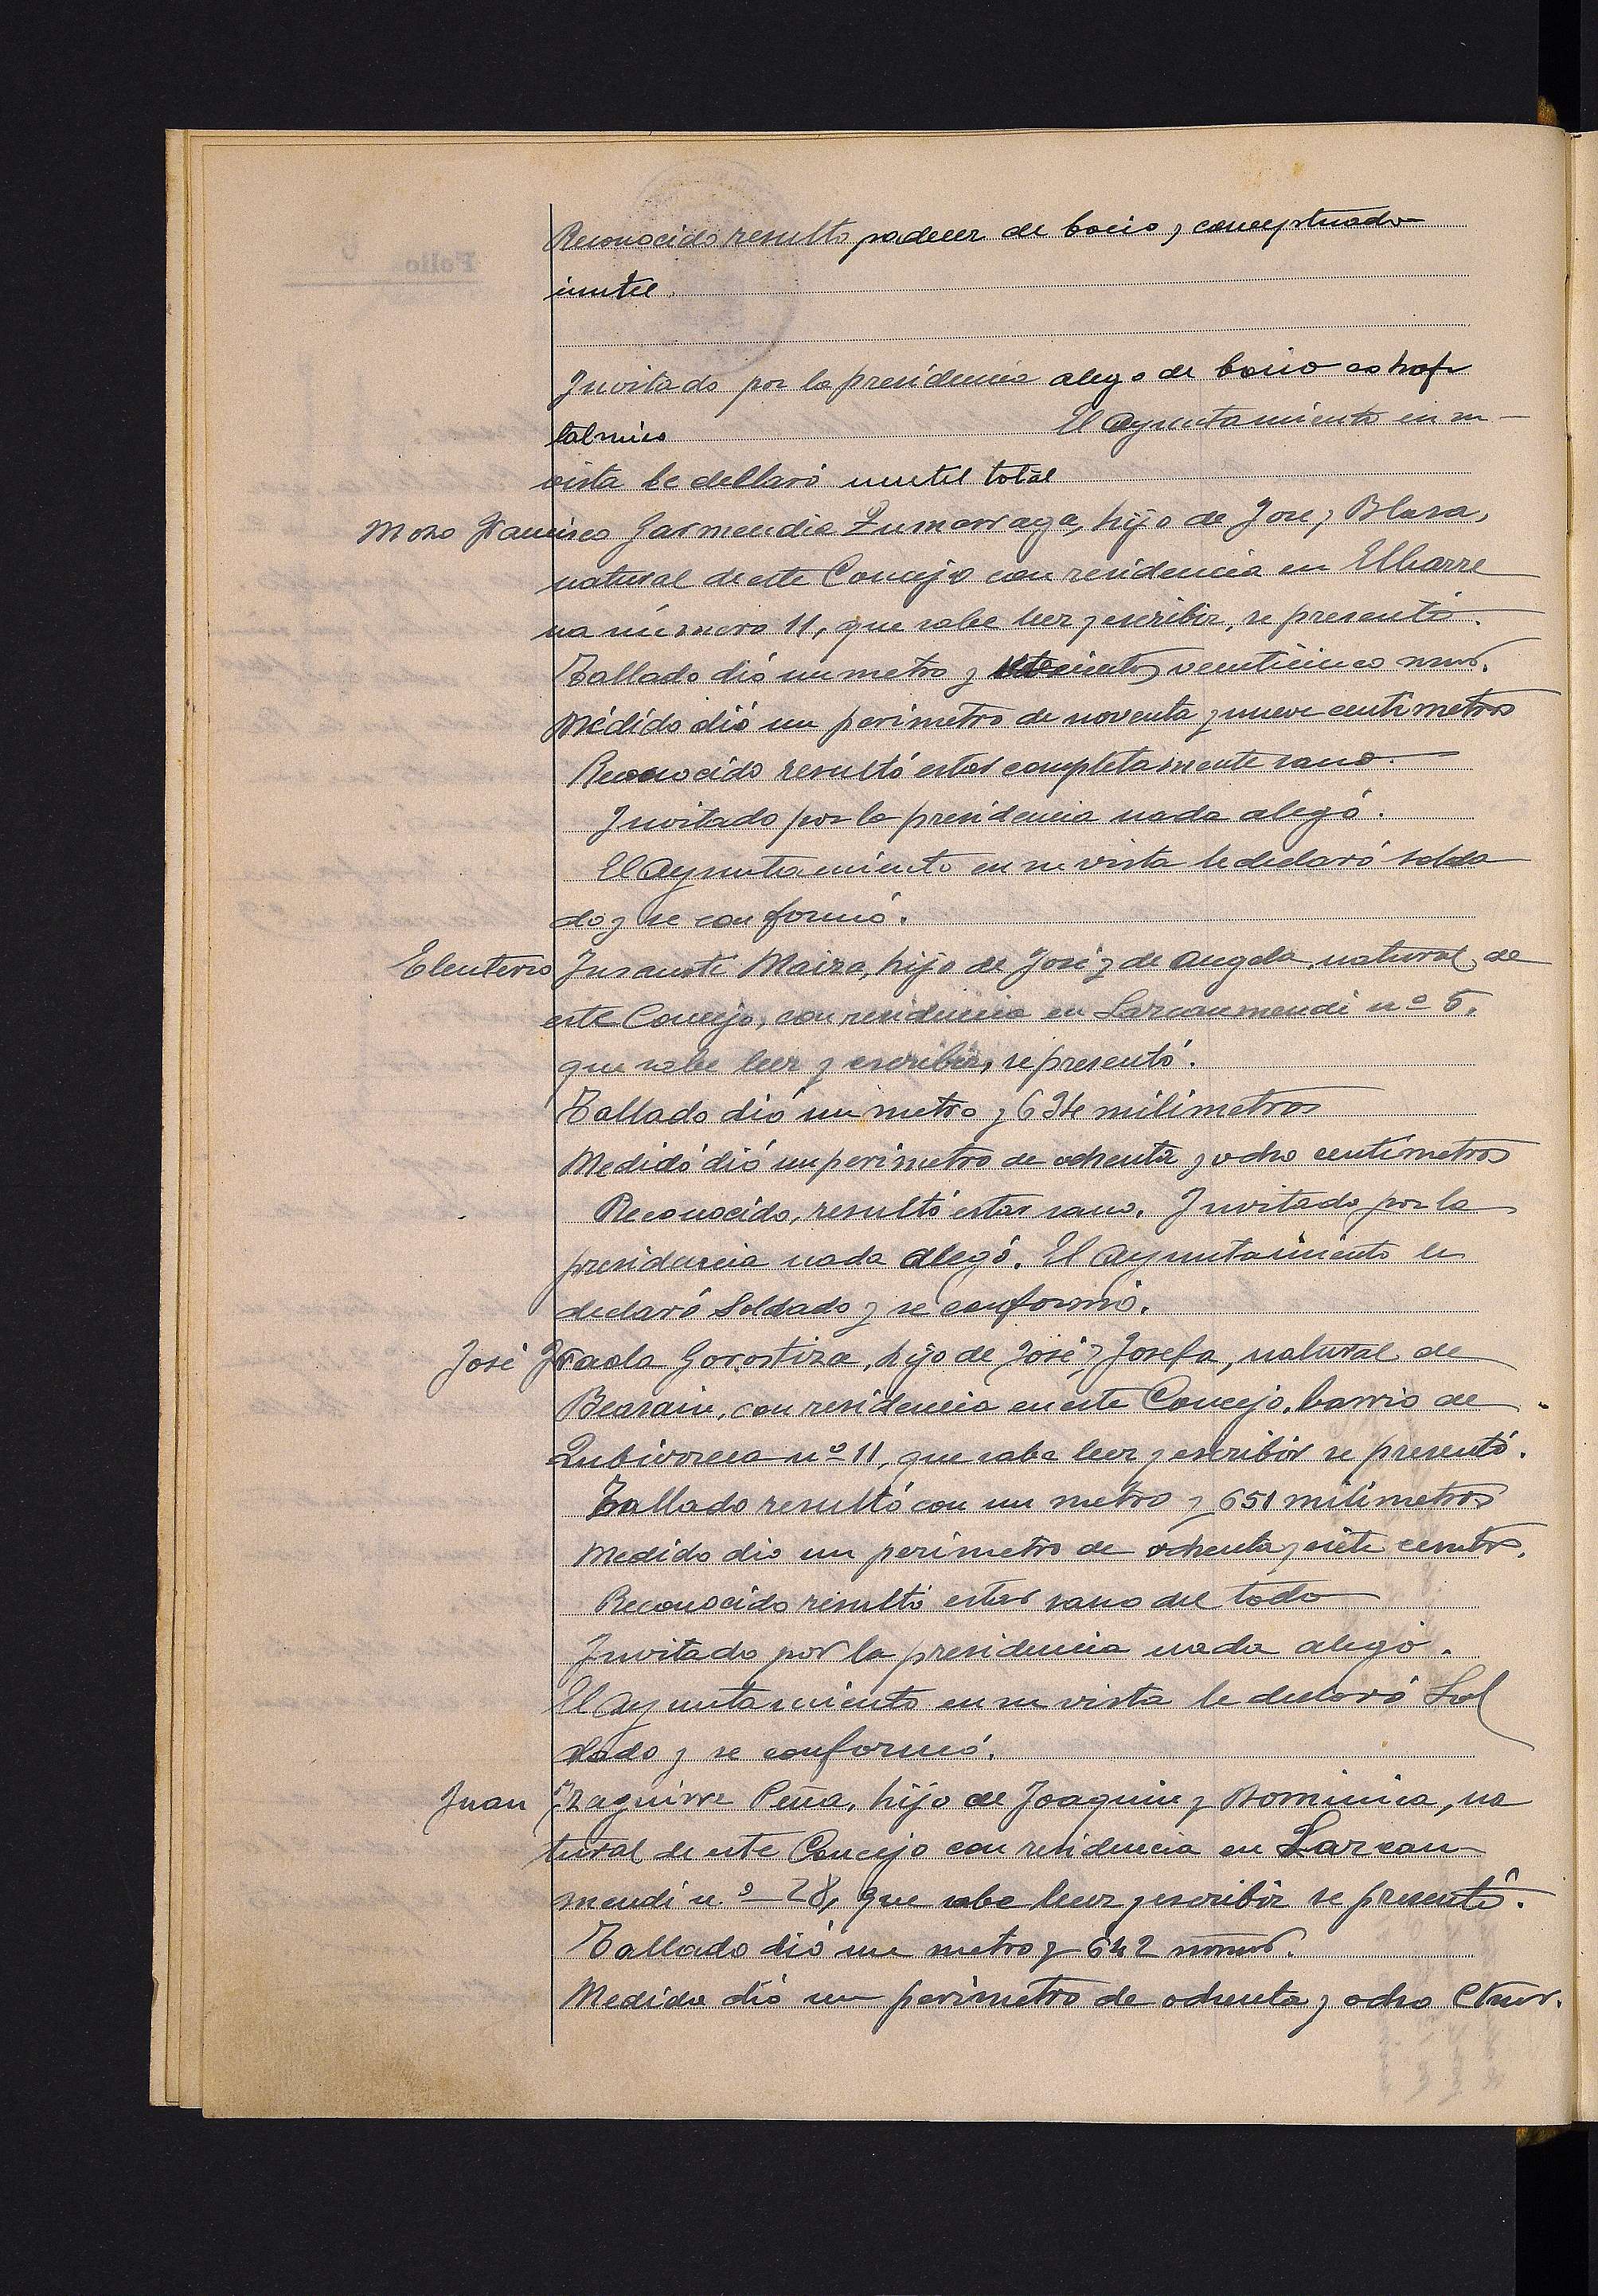 Reconocido resultó padecer de bocio y conceptuado
inutil.
Invitado por la presidencia alegó de bocio
talmico El Ayuntamiento en su
vista le declaró inutil total
Mozo Francisco Garmendia Zumarraga, hijo de Jose y Blasa,
natural de este Concejo con residencia en Elbarre
na número 11, que sabe leer y escribir, se presentó.
Tallado dió un metro y veinticinco mms.
Medido dió un perimetro de noventa y nueve centimetros
Reconocido resultó estar completamente sano.
Invitado por la presidencia nada alegó.
El Ayuntamiento en su vista le declaró solda
do y se conformó.
Eleuterio Insausti Maiza, hijo de José y de Angela, natural de
este Concejo, con residencia en Larcaumendi nº 5.
que sabe leer y escribir, se presentó.
Tallado dió un metro y 634 milimetros
Medido dió un perimetro de ochenta y ocho centímetros
Reconocido, resultó estar sano. Invitado por la
presidencia nada alegó. El Ayuntamiento le
declaró Soldado y se conformó.
José Iraola Gorostiza, hijo de José y Josefa, natural de
Beasain, con residencia en este Concejo, barrio de
nº 11, que sabe leer y escribir se presentó.
Tallado resultó con un metro y 651 milimetros
Medido dio un perimetro de ochenta y siete
Reconocido resultó estar sano del todo
Invitado por la presidencia nada alegó.
El Ayuntamiento en su vista le declaró Sol
dado y se conformó.
Juan Izaguirre Peña, hijo de Joaquin y Dominica, na
tural de este Concejo con residencia en Larcau-
mendi nº 28, que sabe leer y escribir se presentó.
Tallado dió un metro y 642 mms.
Medido dió un perimetro de ochenta y ocho ctms.